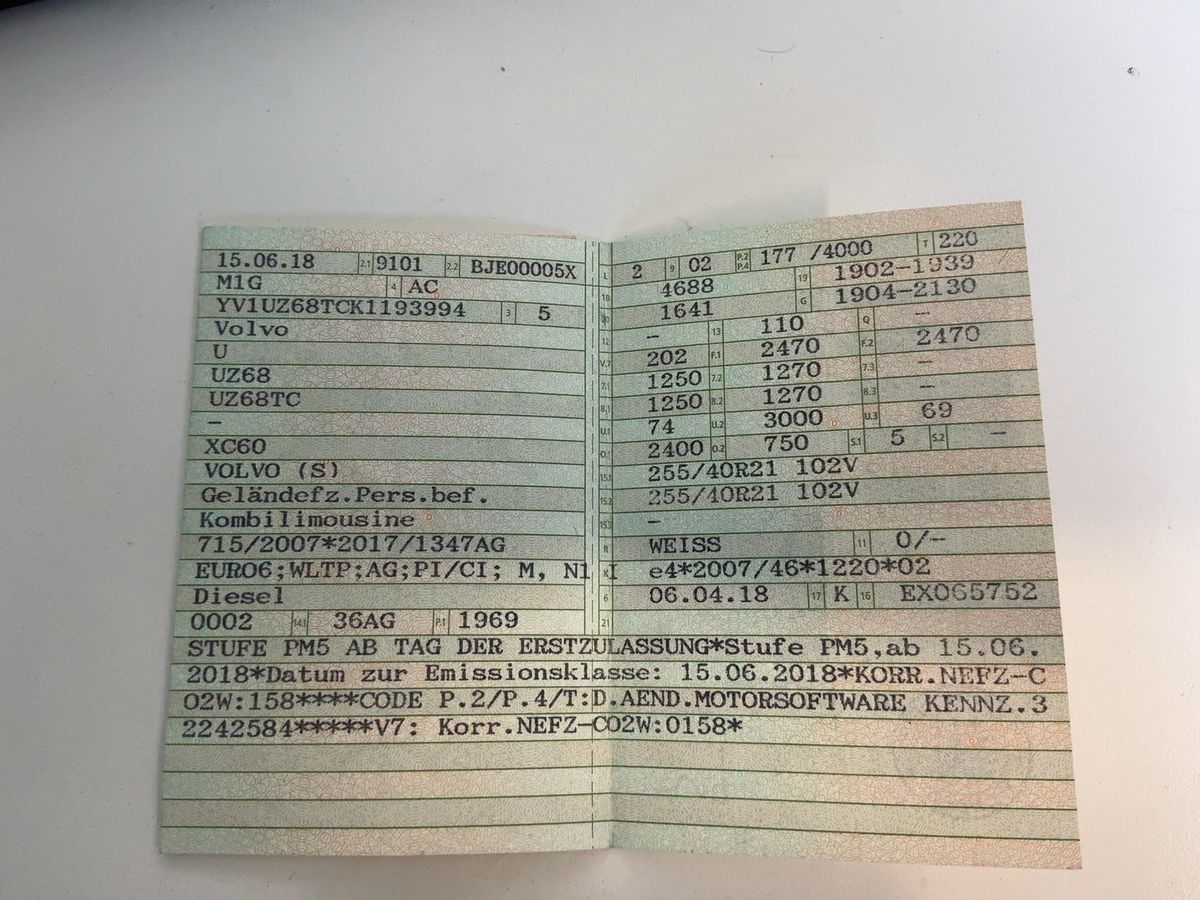 15.06.18 2.1 9101 2.2 BJE00005X
M1G 4 AC
YV1UZ68TCK1193994 3 5
Volvo
U
UZ68
UZ68TC
–
XC60
VOLVO (S)
Geländefz.Pers.bef.
Kombilimousine
715/2007*2017/1347AG
EURO6;WLTP;AG;PI/CI; M, N1 I
Diesel
0002 14.1 36AG P.1 1969
L 2 9 02 P.2 P.4 177 /4000 T 220
18 4688 19 1902-1939
20 1641 G 1904-2130
12 – 13 110 Q –
V.7 202 F.1 2470 F.2 2470
7.1 1250 7.2 1270 7.3 –
8.1 1250 8.2 1270 8.3 –
U.1 74 U.2 3000 U.3 69
O.1 2400 O.2 750 S.1 5 S.2 –
15.1 255/40R21 102V
15.2 255/40R21 102V
15.3 –
R WEISS 11 0/–
K e4*2007/46*1220*02
6 06.04.18 17 K 16 EX065752
21
STUFE PM5 AB TAG DER ERSTZULASSUNG*Stufe PM5,ab 15.06.
2018*Datum zur Emissionsklasse: 15.06.2018*KORR.NEFZ-C
O2W:158****CODE P.2/P.4/T:D.AEND.MOTORSOFTWARE KENNZ.3
2242584*****V7: Korr.NEFZ-CO2W:0158*